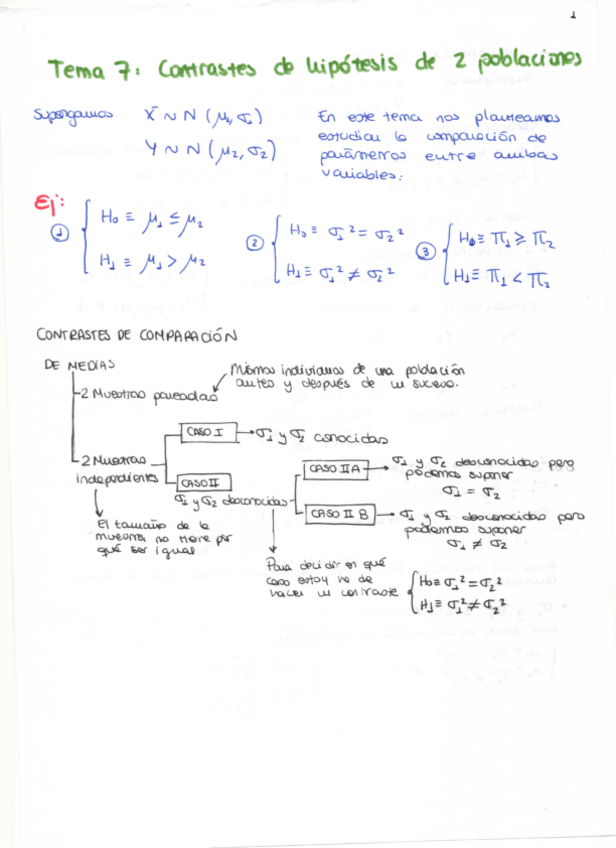 1
Tema 7: Contrastes de hipótesis de 2 poblaciones
Supongamos X ~ N (μ1, σ1)
Y ~ N (μ2, σ2)
En este tema nos planteamos
estudiar la comparación de
parámetros entre ambas
variables:
Ej:
① { H0 ≡ μ1 ≤ μ2
H1 ≡ μ1 > μ2
② { H0 ≡ σ1² = σ2²
H1 ≡ σ1² ≠ σ2²
③ { H0 ≡ π1 ≥ π2
H1 ≡ π1 < π2
CONTRASTES DE COMPARACIÓN
DE MEDIAS
Mismos individuos de una población
antes y después de un suceso.
2 Muestras pareadas
CASO I → σ1 y σ2 conocidas
2 Muestras
independientes
CASO II
σ1 y σ2 desconocidas
CASO II A → σ1 y σ2 desconocidas pero
podemos suponer
σ1 = σ2
CASO II B → σ1 y σ2 desconocidas pero
podemos suponer
σ1 ≠ σ2
El tamaño de la
muestra no tiene por
qué ser igual
Para decidir en qué
caso estoy he de
hacer un contraste { H0 ≡ σ1² = σ2²
H1 ≡ σ1² ≠ σ2²